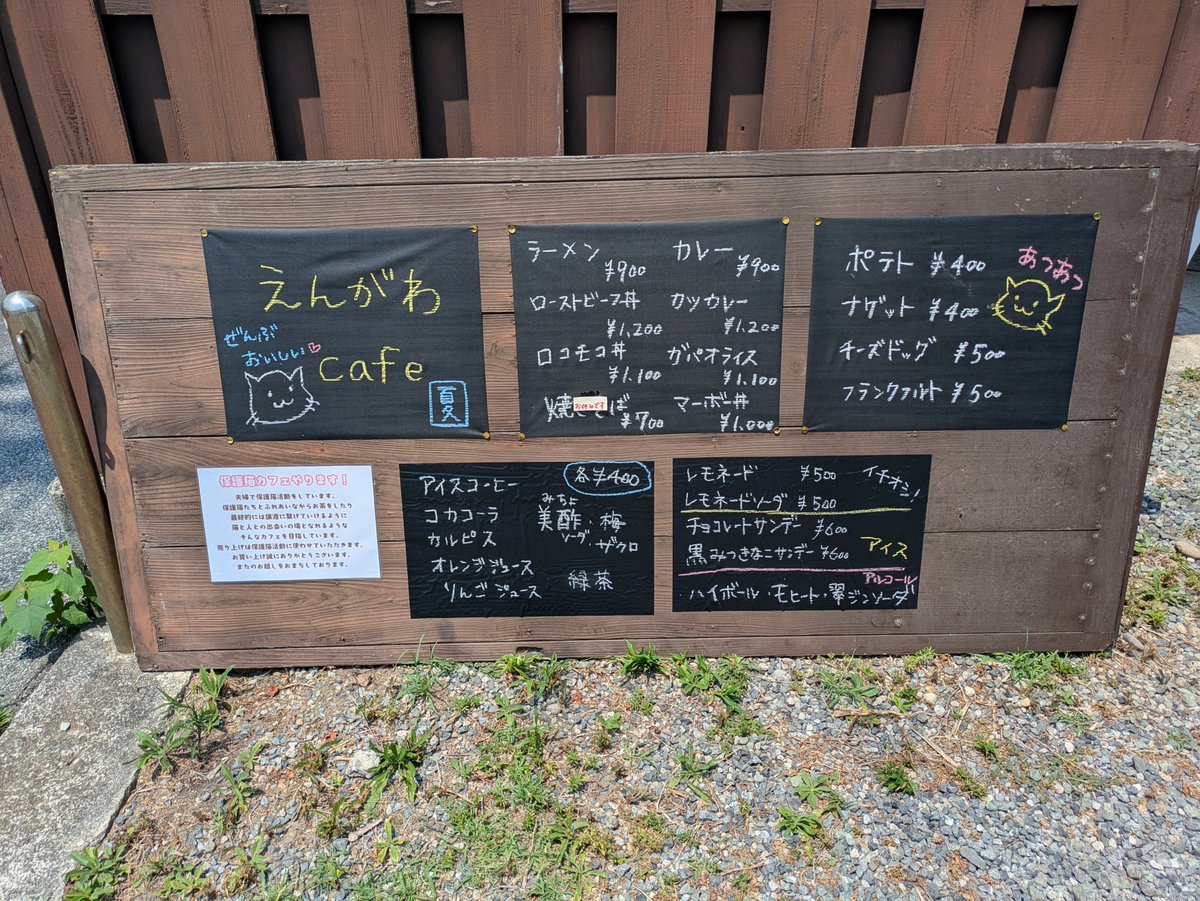 えんがわ
cafe
ぜんぶ
おいしい
夏
ラーメン
¥900
ローストビーフ丼
¥1,200
ロコモコ丼
¥1,100
焼きそば
お休みです
¥700
カレー
¥900
カツカレー
¥1,200
ガパオライス
¥1,100
マーボー丼
¥1,000
ポテト ¥400
あつあつ
ナゲット ¥400
チーズドッグ ¥500
フランクフルト ¥500
保護猫カフェやります!
夫婦で保護猫活動をしています。
保護猫たちとふれあいながらお茶をしたり
最終的には譲渡に繋げていけるように
猫と人との出会いの場となれるような
そんなカフェを目指しています。
売り上げは保護猫活動に使わせていただきます。
お買い上げ誠にありがとうございます。
またのお越しをおまちしております。
各¥400
アイスコーヒー
コカコーラ
カルピス
オレンジジュース
りんごジュース
みちょ
美酢・梅
ソーダ・ザクロ
緑茶
レモネード ¥500 イチオシ!
レモネードソーダ ¥500
チョコレートサンデー ¥600
黒みつきなこサンデー ¥600 アイス
アルコール
ハイボール・モヒート・翠ジンソーダ